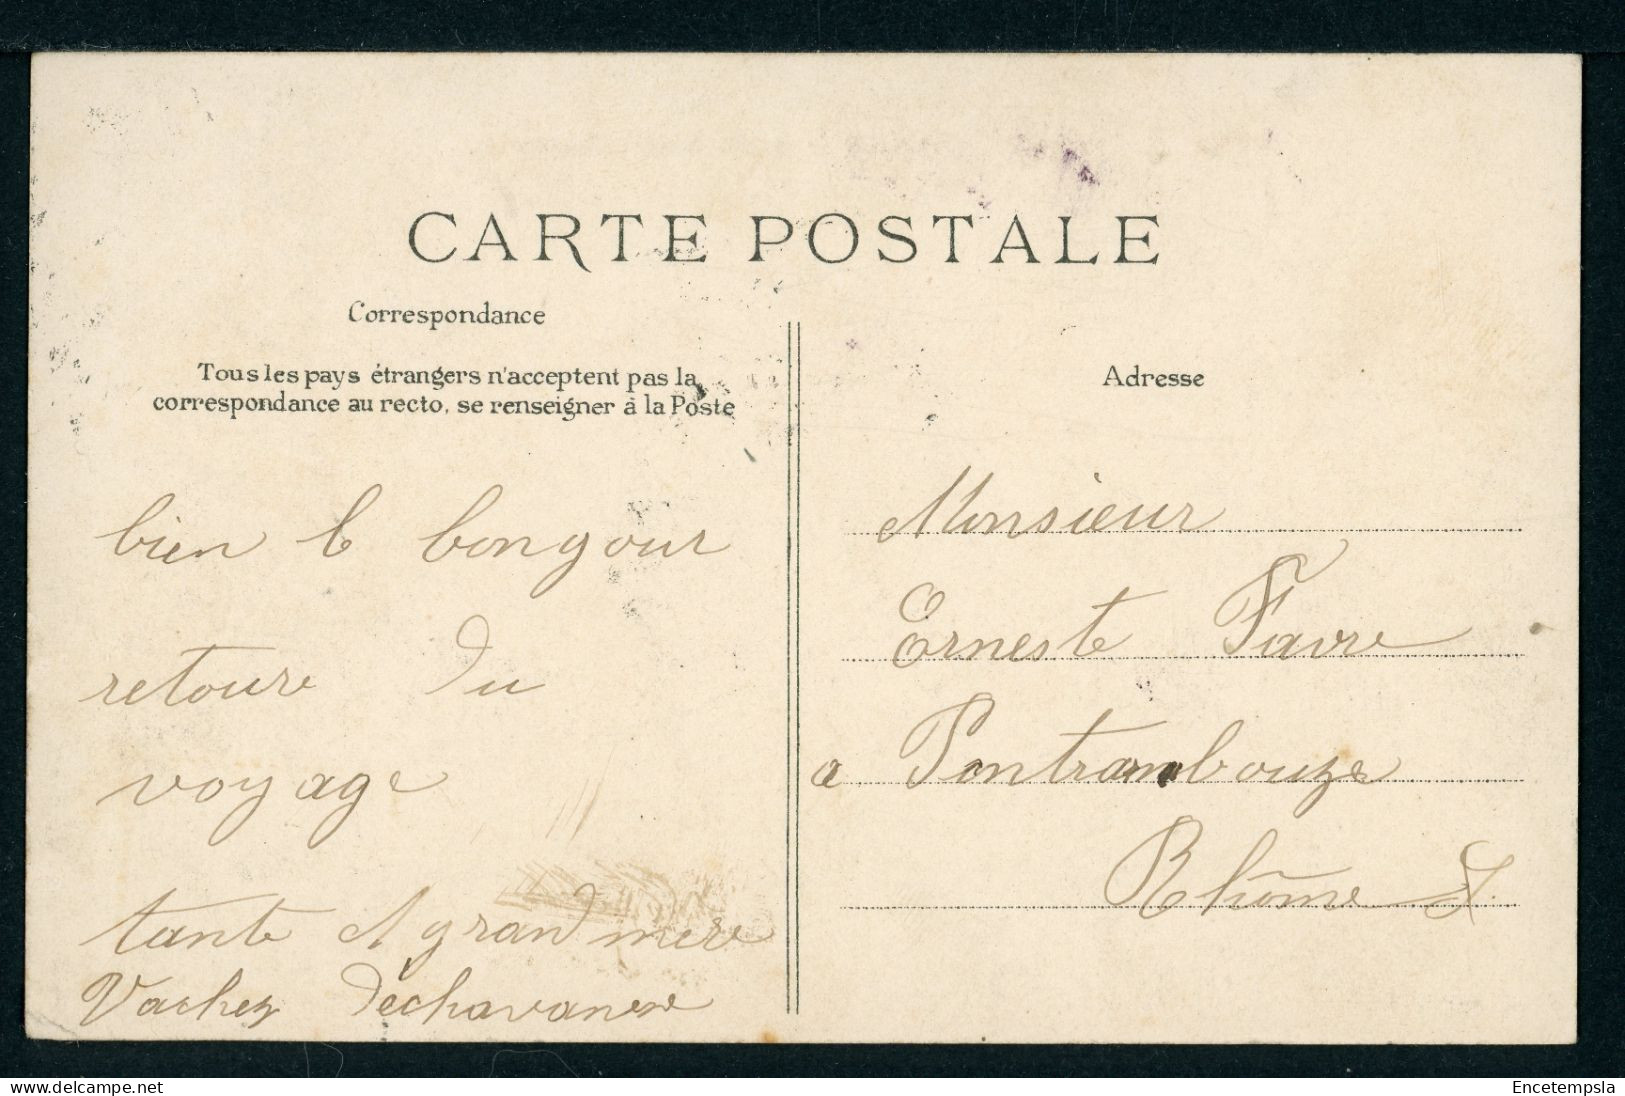 CARTE POSTALE
Correspondance
Tous les pays étrangers n'acceptent pas la
correspondance au recto, se renseigner à la Poste
bien le bongour
retoure du
voyage
tante et grand mere
Vachez Déchavanne
Adresse
Monsieur
Erneste Favre
a Pontrambouze
Rhône
delcampe.net
Encetempsla